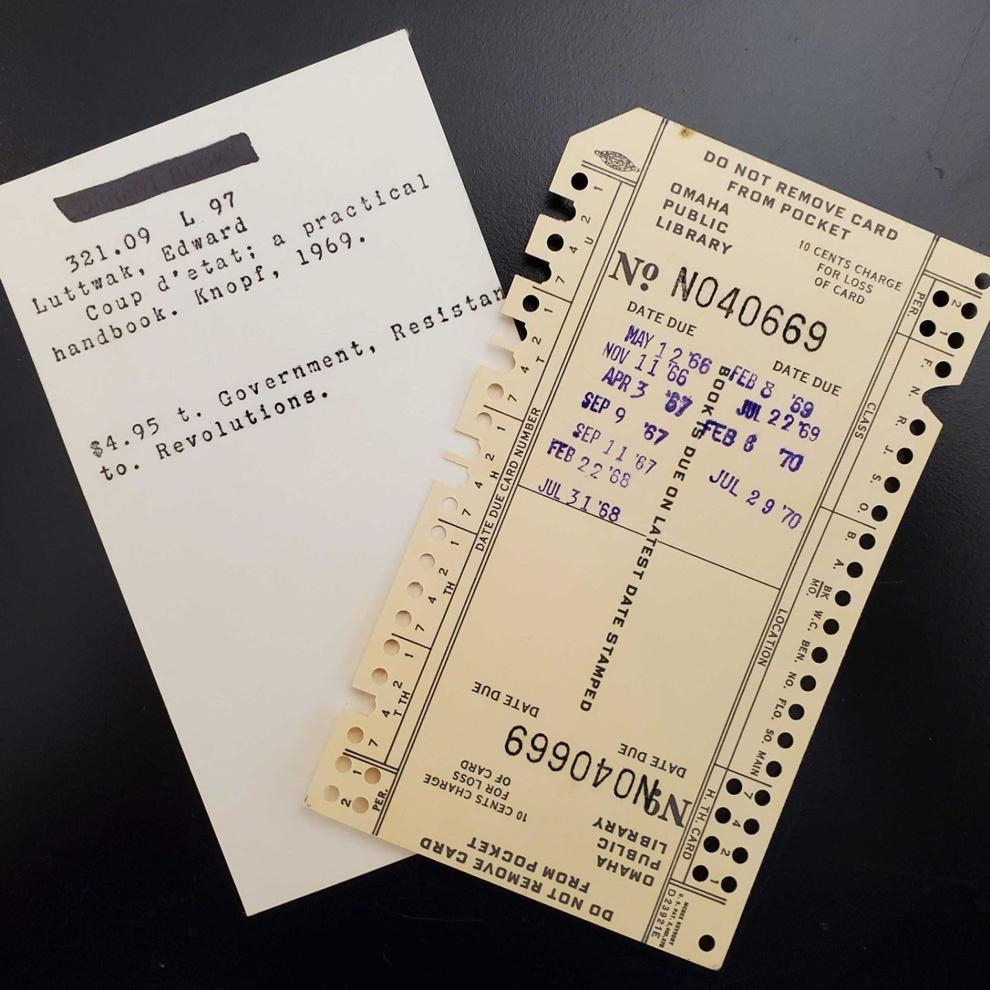 321.09 L 97
Luttwak, Edward
Coup d'etat; a practical
handbook. Knopf, 1969.
$4.95 t. Government, Resistan
to. Revolutions.
DO NOT REMOVE CARD
FROM POCKET
OMAHA
PUBLIC
LIBRARY
10 CENTS CHARGE
FOR LOSS
OF CARD
No N040669
DATE DUE
DATE DUE
MAY 12 '66
NOV 11 '66
APR 3 '67
SEP 9 '67
SEP 11 '67
FEB 22 '68
JUL 31 '68
FEB 8 '69
JUL 22 '69
FEB 6 '70
JUL 29 '70
BOOK IS DUE ON LATEST DATE STAMPED
DATE DUE
DATE DUE
No N040669
10 CENTS CHARGE
FOR LOSS
OF CARD
OMAHA
PUBLIC
LIBRARY
DO NOT REMOVE CARD
FROM POCKET
1 2 4 7 U
1 2 4 7 T
1 2 4 7 H
1 2 4 7 TH
1 2 4 7 T TH
1 2 PER.
DATE DUE CARD NUMBER
PER. 2 1
F. N. R. J. S. O.
CLASS
B. A. BK MO. W.C. BEN. NO. FLO. SO. MAIN
LOCATION
7 4 2 1
H. TH. CARD
D23921E